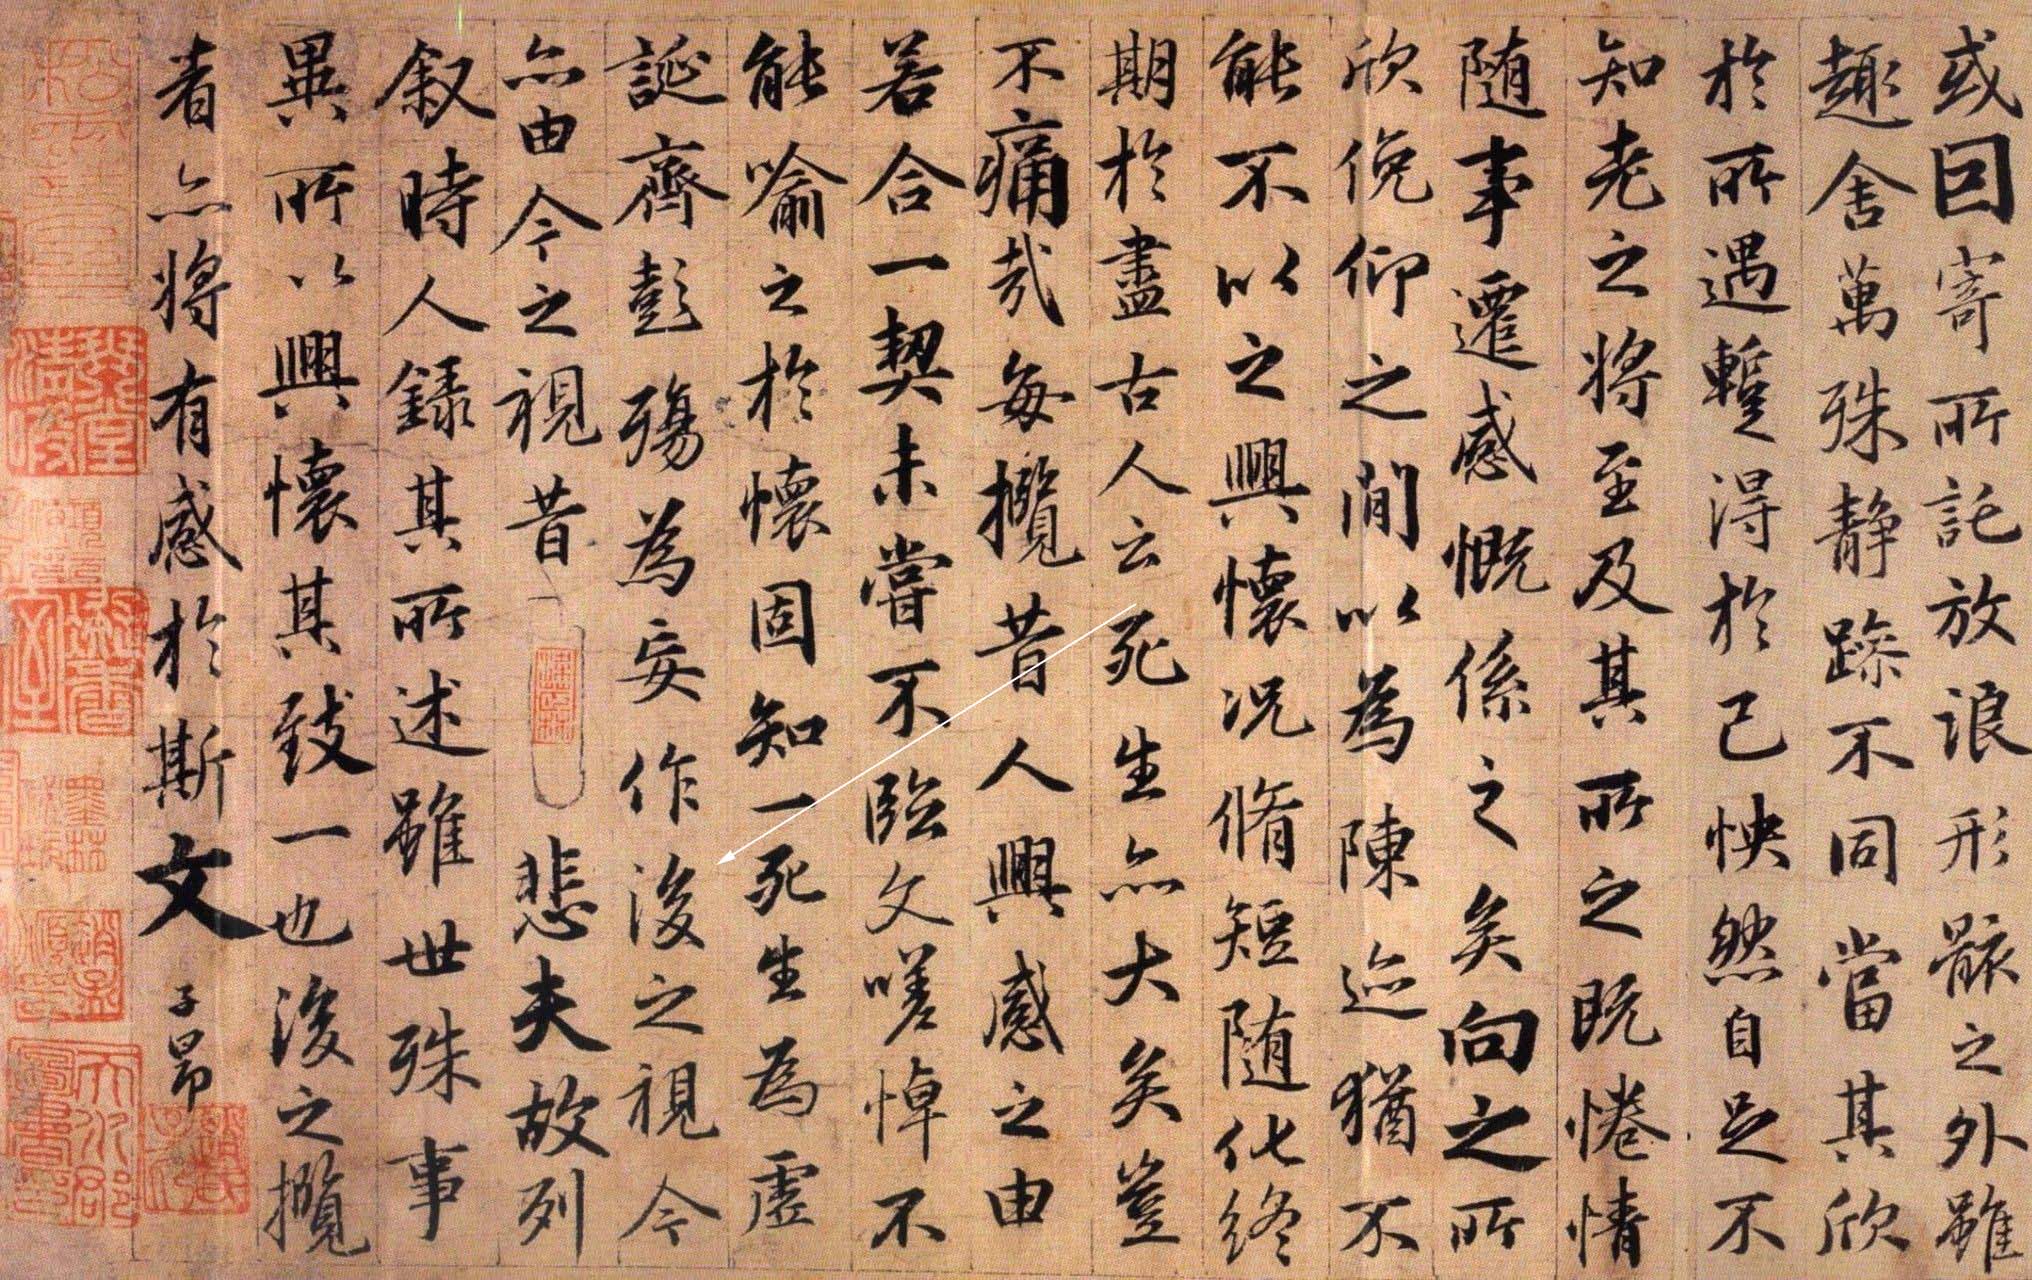 或因寄所託放浪形骸之外雖
趣舍萬殊静躁不同當其欣
於所遇蹔得於己怏然自足不
知老之将至及其所之既惓情
随事遷感慨係之矣向之所
欣俛仰之閒以為陳迹猶不
能不以之興懷况脩短随化終
期於盡古人云死生亦大矣豈
不痛哉每攬昔人興感之由
若合一契未嘗不臨文嗟悼不
能喻之於懷固知一死生為虚
誕齊彭殤為妄作後之視今
亦由今之視昔悲夫故列
叙時人録其所述雖世殊事
異所以興懷其致一也後之攬
者亦将有感於斯文
子昂